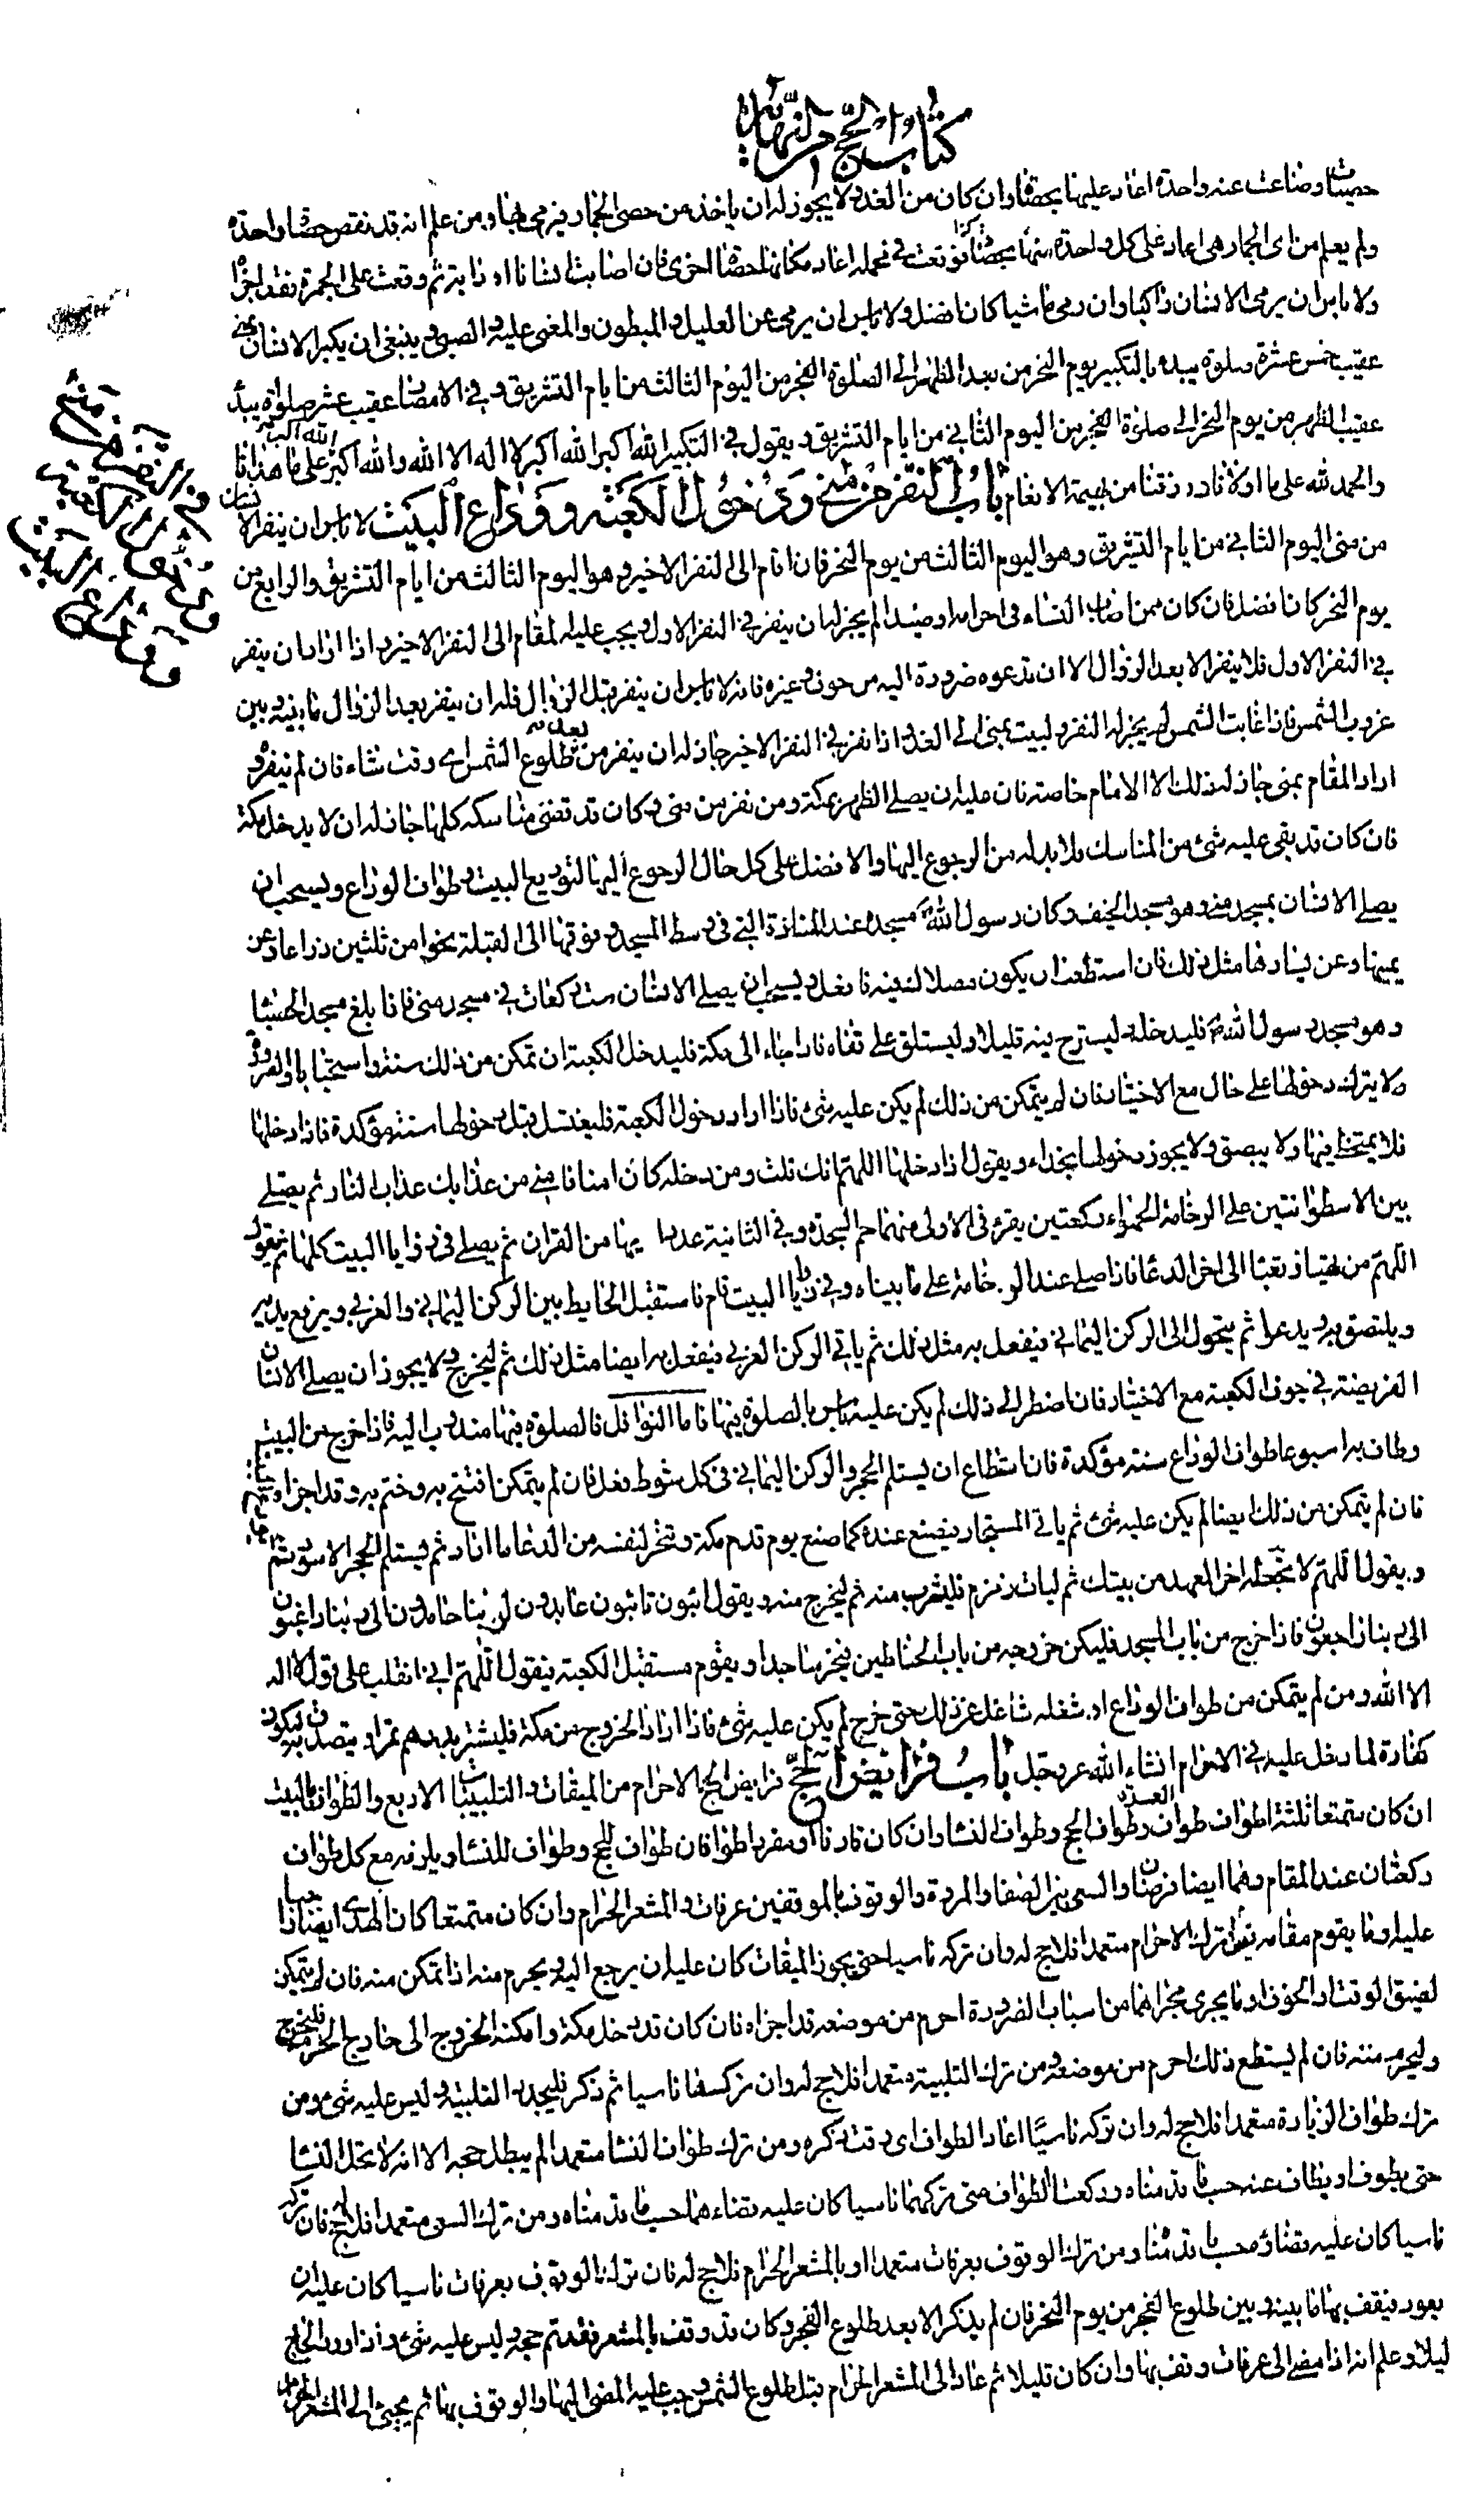 كتاب الحج من النهاية
حصيات وضاعت عنه واحدة اعاد عليها بحصاة وان كان من الغد ولا يجوز له ان ياخذ من حصى الجمار فيرمى بها ومن علم انه قد نقص حصاة واحدة
ولم يعلم من اى الجمار هى اعاد على كل واحدة منها بحصاة فان وقعت فى محمله اعاد مكانها حصاة اخرى فان اصابت انسانا او دابة ثم وقعت على الجمرة فقد اجزا
ولا باس ان يرمى الانسان راكبا وان رمى ماشيا كان افضل ولا باس ان يرمى عن العليل والمبطون والمغمى عليه والصبى وينبغى ان يكبر الانسان بمنى
عقيب خمس عشرة صلوة يبدء بالتكبير يوم النحر من بعد الظهر الى الصلوة الفجر من اليوم الثالث من ايام التشريق وفى الامصار عقيب عشر صلوات يبدء
عقيب الظهر من يوم النحر الى صلوة الفجر من اليوم الثانى من ايام التشريق ويقول فى التكبير الله اكبر الله اكبر لا اله الا الله والله اكبر الله اكبر على ما هدانا
والحمد لله على ما اولانا ورزقنا من بهيمة الانعام باب النفر من منى ودخول الكعبة ووداع البيت لا باس ان ينفر الانسان
من منى اليوم الثانى من ايام التشريق وهو اليوم الثالث من يوم النحر فان اقام الى النفر الاخير وهو اليوم الثالث من ايام التشريق والرابع من
يوم النحر كان افضل فان كان ممن اصاب النساء فى احرامه او صيدا لم يجز له ان ينفر فى النفر الاول ويجب عليه المقام الى النفر الاخير واذا اراد ان ينفر
فى النفر الاول فلا ينفر الا بعد الزوال الا ان تدعوه ضرورة اليه من خوف وغيره فانه لا باس ان ينفر قبل الزوال فله ان ينفر بعد الزوال ما بينه وبين
غروب الشمس فاذا غابت الشمس لم يجز له النفر وليبت بمنى الى الغد واذا نفر فى النفر الاخير جاز له ان ينفر من بعد طلوع الشمس اى وقت شاء فان لم ينفر و
اراد المقام بمنى جاز له ذلك الا الامام خاصة فان عليه ان يصلى الظهر بمكة ومن نفر من منى وكان قد قضى مناسكه كلها جاز له ان لا يدخل مكة
فان كان قد بقى عليه شئ من المناسك فلا بد له من الرجوع اليها والافضل على كل حال الرجوع اليها لتوديع البيت وطواف الوداع ويستحب ان
يصلى الانسان بمسجد منى وهو مسجد الخيف وكان رسول الله مسجده عند المنارة التى فى وسط المسجد وفوقها الى القبلة نحوا من ثلثين ذراعا وعن
يمينها وعن يسارها مثل ذلك فان استطعت ان يكون مصلاك فيه فافعل ويستحب ان يصلى الانسان ست ركعات فى مسجد منى فاذا بلغ مسجد الحصبا
وهو مسجد رسول الله فليدخله وليسترح فيه قليلا وليستلق على قفاه فاذا جاء الى مكة فليدخل الكعبة ان تمكن من ذلك سنة واستحبابا والصرورة
لا يترك دخولها على حال مع الاختيار فان لم يتمكن من ذلك لم يكن عليه شئ فاذا اراد دخول الكعبة فليغتسل قبل دخولها سنة مؤكدة فاذا دخلها
فلا يمتخط فيها ولا يبصق ولا يجوز دخولها بحذاء ويقول اذا دخلها اللهم انك قلت ومن دخله كان امنا فامنى من عذابك عذاب النار ثم يصلى
بين الاسطوانتين على الرخامة الحمراء ركعتين يقرء فى الاولى منهما حم السجدة وفى الثانية عدد ايها من القران ثم يصلى فى زوايا البيت كلها ثم يقول
اللهم من تهيا وتعبا الى اخر الدعا فاذا صلى عند الرخامة على ما بيناه وفى زوايا البيت قام فاستقبل الحايط بين الركن اليمانى والغربى ويرفع يديه
ويلتصق به ويدعوا ثم يتحول الى الركن اليمانى فيفعل به مثل ذلك ثم ياتى الركن الغربى فيفعل به ايضا مثل ذلك ثم ليخرج ولا يجوز ان يصلى الانسان
الفريضة فى جوف الكعبة مع الاختيار فان اضطر الى ذلك لم يكن عليه باس بالصلوة فيها فاما النوافل فالصلوة فيها مندوب اليه فاذا خرج من البيت
وطاف به اسبوعا طواف الوداع سنة مؤكدة فان استطاع ان يستلم الحجر والركن اليمانى فى كل شوط فعل فان لم يتمكن افتتح به وختم به وقد اجزاه
فان لم يتمكن من ذلك ايضا لم يكن عليه شئ ثم ياتى المستجار فيصنع عنده كما صنع يوم قدم مكة وتخير لنفسه من الدعا ما اراد ثم يستلم الحجر الاسود ثم
ويقول اللهم لا تجعله اخر العهد من بيتك ثم ليات زمزم فليشرب منه ثم ليخرج منه ويقول ائبون تائبون عابدون لربنا حامدون الى ربنا راغبون
الى ربنا راجعون فاذا خرج من باب المسجد فليكن خروجه من باب الحناطين فيخر ساجدا ويقوم مستقبل الكعبة فيقول اللهم انى انقلب على قول لا اله
الا الله ومن لم يتمكن من طواف الوداع او شغله شاغل عن ذلك حتى خرج لم يكن عليه شئ فاذا اراد الخروج من مكة فليشتر بدرهم تمرا ويتصدق به ليكون
كفارة لما دخل عليه فى الاحرام انشاء الله عز وجل باب فرائض الحج فرايض الحج الاحرام من الميقات والتلبيات الاربع والطواف بالبيت
ان كان متمتعا ثلثة اطواف طواف العمرة وطواف الحج وطواف النساء وان كان قارنا او مفردا طوافان طواف للحج وطواف للنساء ويلزمه مع كل طواف
ركعتان عند المقام وهما ايضا فرضان والسعى بين الصفا والمروة والوقوف بالموقفين عرفات والمشعر الحرام وان كان متمتعا كان الهدى ايضا واجبا
عليه او ما يقوم مقامه فمن ترك الاحرام متعمدا فلا حج له وان تركه ناسيا حتى يجوز الميقات كان عليه ان يرجع اليه ويحرم منه اذا تمكن منه فان لم يتمكن
لضيق الوقت او الخوف او ما يجرى مجراهما من اسباب الضرورة احرم من موضعه وقد اجزاه فان كان قد دخل مكة وامكنه الخروج الى خارج الحرم فليخرج
وليحرم منه فان لم يستطع ذلك احرم من موضعه ومن ترك التلبية متعمدا فلا حج له وان تركها ناسيا ثم ذكر فليجدد التلبية وليس عليه شئ ومن
ترك طواف الزيارة متعمدا فلا حج له وان تركه ناسيا اعاد الطواف اى وقت ذكره ومن ترك طواف النساء متعمدا لم يبطل حجه الا انه لا تحل له النساء
حتى يطوف او يطاف عنه حسب ما قدمناه وركعتا الطواف متى تركهما ناسيا كان عليه قضاءهما حسب ما قدمناه ومن ترك السعى متعمدا فلا حج له فان تركه
ناسيا كان عليه قضاؤه حسب ما قدمناه ومن ترك الوقوف بعرفات متعمدا او بالمشعر الحرام فلا حج له فان ترك الوقوف بعرفات ناسيا كان عليه ان
يعود فيقف بها ما بينه وبين طلوع الفجر من يوم النحر فان لم يذكر الا بعد طلوع الفجر وكان قد وقف بالمشعر فقد تم حجه وليس عليه شئ واذا ورد الحاج
ليلا وعلم انه اذا مضى الى عرفات وقف بها وان كان قليلا ثم عاد الى المشعر الحرام قبل طلوع الشمس وجب عليه المضى اليها والوقوف بها ثم يجئ الى المشعر الحرام
فى النفر من منى
ودخول الكعبة
ووداع البيت